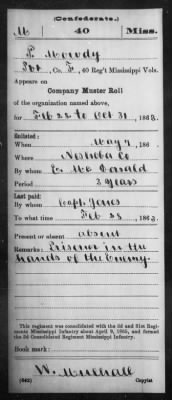 (Confederate.)
M 40 Miss.
P. Morody
Pvt, Co. F, 40 Reg't Mississippi Vols.
Appears on
Company Muster Roll
of the organization named above,
for Feb 28 to Oct 31, 1863.
Enlisted:
When May 7, 186
Where Neshoba Co
By whom E. McDonald
Period 3 years
Last paid:
By whom Capt. Jones
To what time Feb 28, 1863.
Present or absent absent
Remarks: Prisoner in the
hands of the Enemy.
This regiment was consolidated with the 3d and 31st Regiments
Mississippi Infantry about April 9, 1865, and formed
the 3d Consolidated Regiment Mississippi Infantry.
Book mark:
W. Mulhall
(642) Copyist